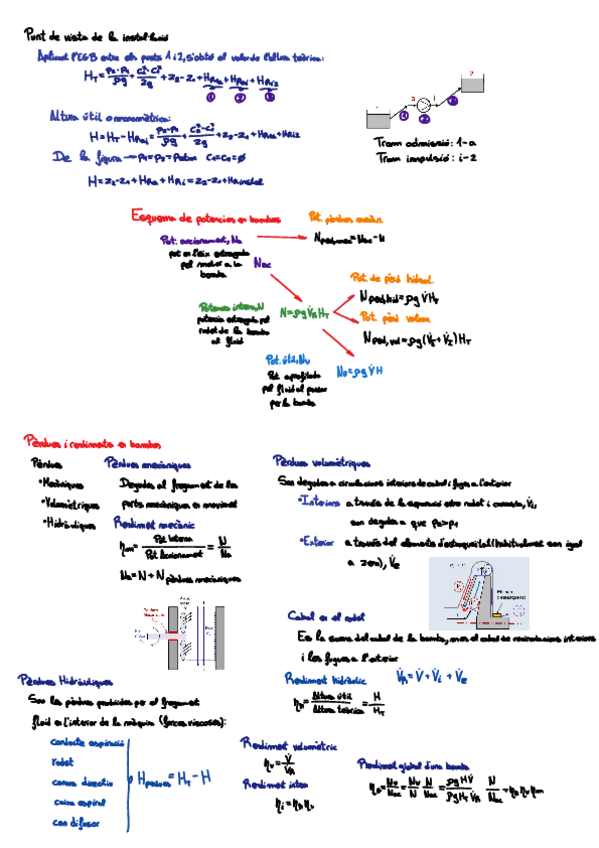 Punt de vista de la instal·lació
Aplicant l'EGB entre els punts 1 i 2, s'obté el valor de l'altura teòrica:
H_T = (p₂-p₁)/ρg + (c₂²-c₁²)/2g + z₂-z₁ + H_Ra + H_Ri + H_Ri2
① ② ③
Altura útil o manomètrica:
H = H_T - H_Ri = (p₂-p₁)/ρg + (c₂²-c₁²)/2g + z₂-z₁ + H_Ra + H_Ri2
De la figura → p₁=p₂=patm c₁=c₂=0
H = z₂-z₁ + H_Ra + H_Ri = z₂-z₁ + H_R instal
1 a i 2
Tram admissió: 1-a
Tram impulsió: i-2
Esquema de potències en bombes
Pot. pèrdues mecàn.
N_perd,mec = N_ac - N
Pot. accionament, Na
pot en l'eix entregada
pel motor a la
bomba
N_ac
Pot. de pèrd hidràul.
N_perd,hid = ρg V̇ H_T
Pot. pèrd volum.
N_perd,vol = ρg(V̇_E + V̇_I) H_T
Potència interna, N
potència entregada pel
rodet de la bomba
al fluid
N = ρg V̇_R H_T
Pot. útil, Nu
Pot aprofitada
pel fluid al passar
per la bomba
N_u = ρg V̇ H
Pèrdues i rendiments en bombes
Pèrdues
•Mecàniques
•Volumètriques
•Hidràuliques
Pèrdues mecàniques
Degudes al fregament de les
parts mecàniques en moviment
Rendiment mecànic
η_m = Pot Interna / Pot Accionament = N / Na
Na = N + N pèrdues mecàniques
Pèrdues volumètriques
Son degudes a circulacions interiors de cabal i fugues a l'exterior
•Interiors a través de la separació entre rodet i carcassa, V̇i,
son degudes a que p₂>p₁
•Exterior a través del elements d'estanqueitat (habitualment son igual
a zero), V̇e
Cabal en el rodet
Es la suma del cabal de la bomba, mes el cabal de recirculacions interiors
i les fugues a l'exterior
V̇_R = V̇ + V̇_i + V̇_e
Rendiment hidràulic
η_h = Altura útil / Altura teòrica = H / H_T
Pèrdues Hidràuliques
Son les pèrdues produides per el fregament
fluid en l'interior de la màquina (forces viscoses):
conducte aspiració
rodet
corona directriu
caixa espiral
con difusor
H pèrdues = H_T - H
Rendiment volumètric
η_v = V̇ / V̇_R
Rendiment intern
η_i = η_h η_v
Rendiment global d'una bomba
η_g = N_u/N_ac = N_u/N · N/N_ac = ρg H V̇ / ρg H_T V̇_R · N/N_ac = η_h η_v η_m